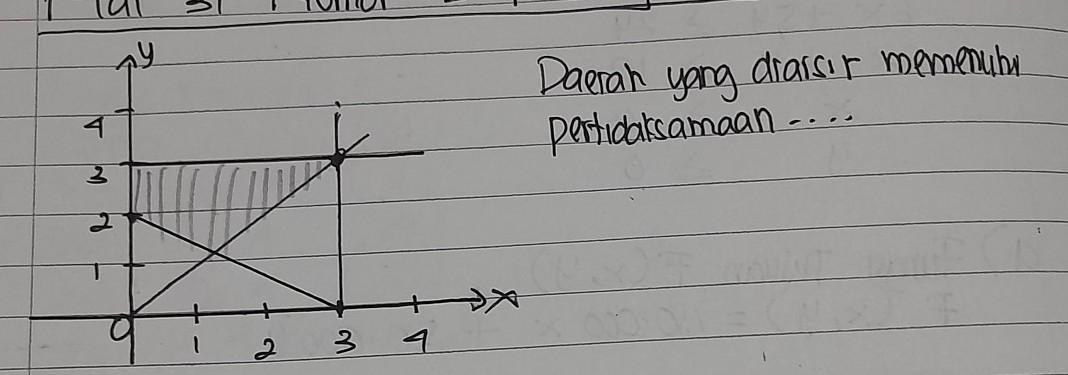 y
Daerah yang diarsir memenuhi
pertidaksamaan ....
4
3
2
1
0 1 2 3 4 x